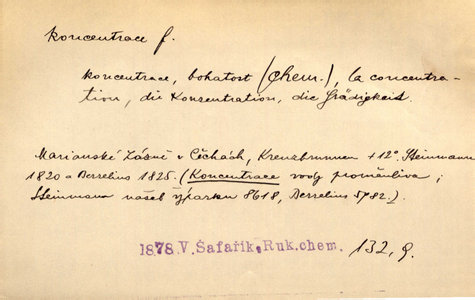 koncentrace f.
koncentrace, bohatost (chem.), la concentra-
tion, die Konzentration, die Grädigkeit.
Marianské Lázně v Čěchách, Kreuzbrunnen +12° Steinmann
1820 a Berzelius 1825. (Koncentrace vody proměnliva;
Steinmann našel výparku 8618, Berzelius 5782.).
1878.V.Šafařík,Ruk.chem. 132, 9.